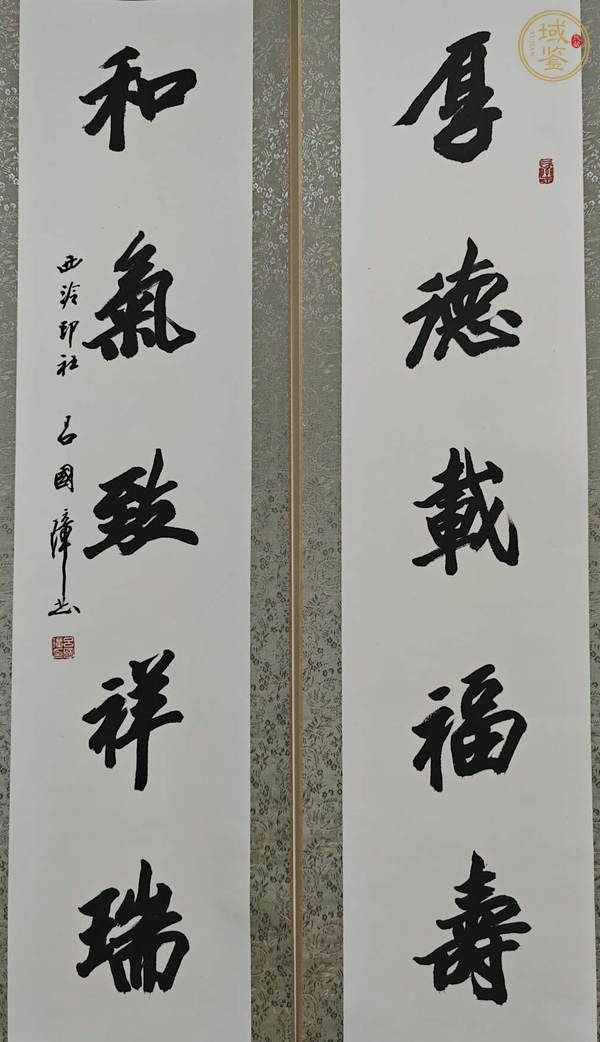 厚德載福壽
和氣致祥瑞
西泠印社 呂國璋书
域鉴
YUJIAN